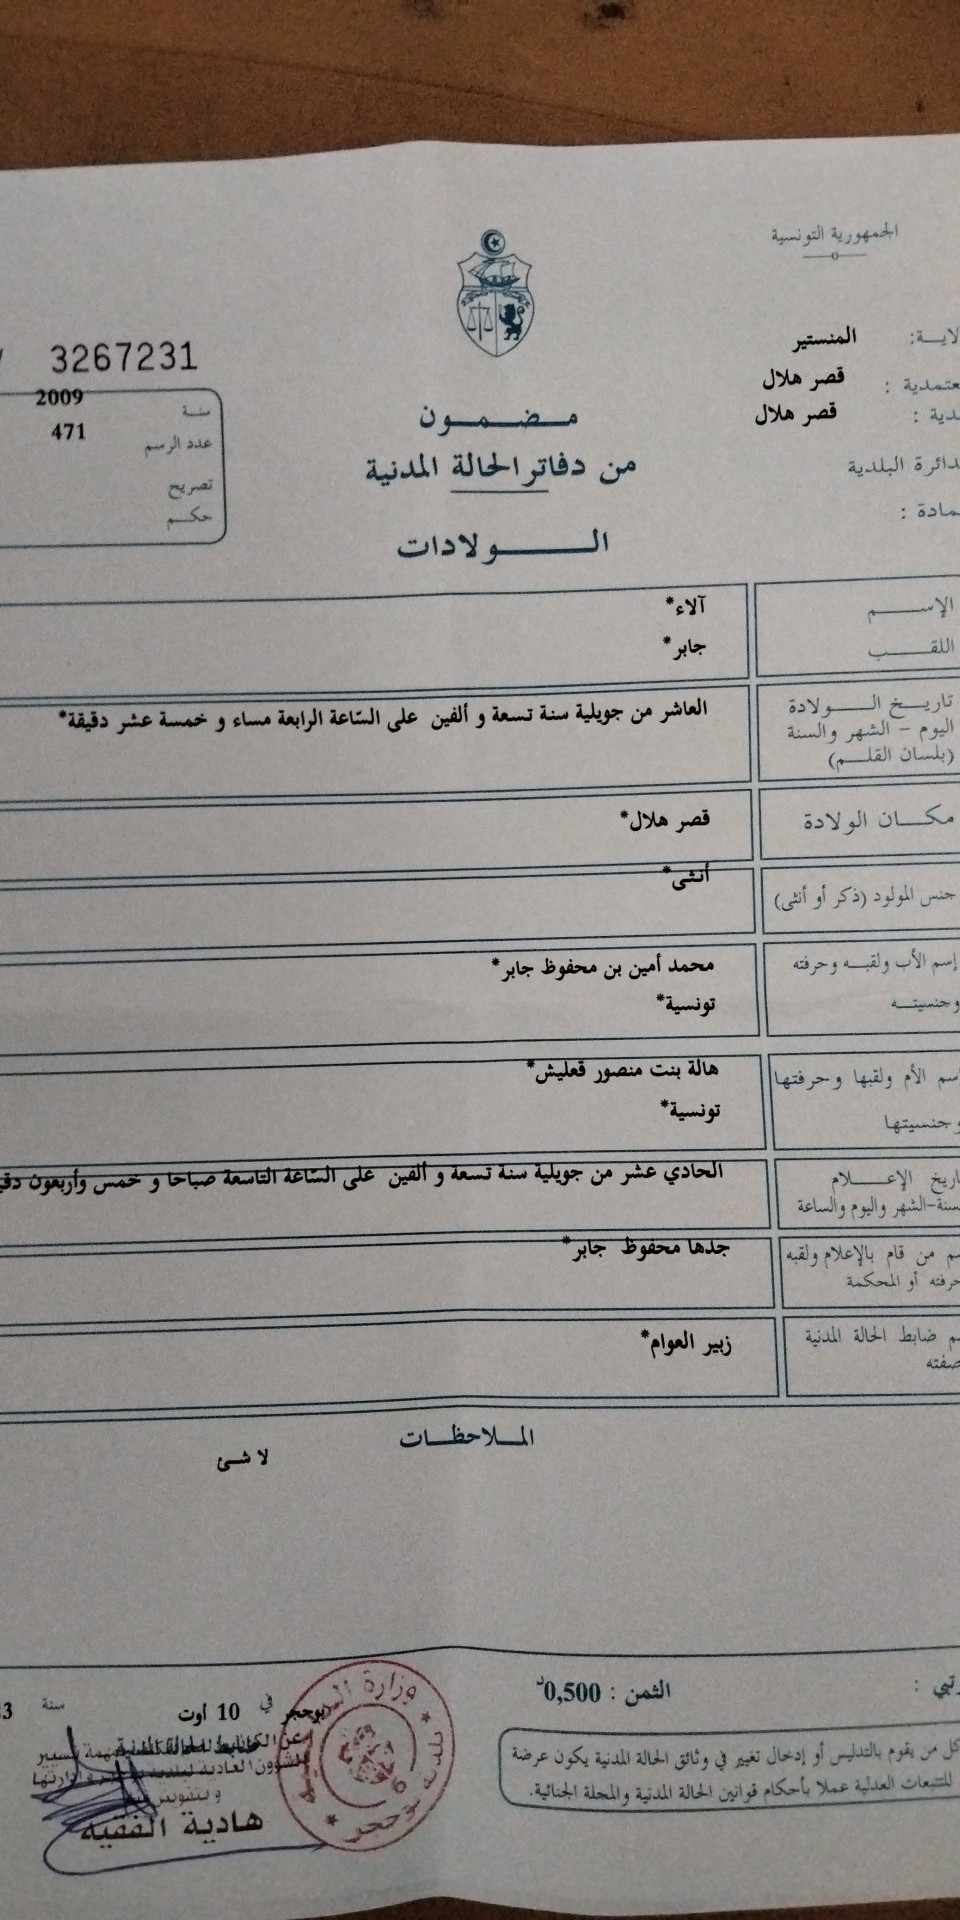 الجمهورية التونسية
المنستير
قصر هلال
قصر هلال
الدائرة البلدية
3267231
سنة 2009
عدد الرسم 471
تصريح
حكم
مضمون
من دفاتر الحالة المدنية
الولادات
الإسم آلاء*
اللقب جابر*
تاريخ الولادة
اليوم - الشهر والسنة
(بلسان القلم)
العاشر من جويلية سنة تسعة و ألفين على السّاعة الرابعة مساء و خمسة عشر دقيقة*
مكان الولادة قصر هلال*
جنس المولود (ذكر أو أنثى) أنثى*
إسم الأب ولقبه وحرفته محمد أمين بن محفوظ جابر*
وجنسيته تونسية*
إسم الأم ولقبها وحرفتها هالة بنت منصور قعليش*
وجنسيتها تونسية*
تاريخ الإعلام
السنة-الشهر واليوم والساعة
الحادي عشر من جويلية سنة تسعة و ألفين على السّاعة التاسعة صباحا و خمس وأربعون
من قام بالإعلام ولقبه
حرفته أو المحكمة
جدها محفوظ جابر*
ضابط الحالة المدنية
صفته
زبير العوام*
الملاحظات
لا شئ
الثمن : 0,500د
كل من يقوم بالتدليس أو إدخال تغيير في وثائق الحالة المدنية يكون عرضة
للتتبعات العدلية عملا بأحكام قوانين الحالة المدنية والمجلة الجنائية.
بوحجر في 10 أوت سنة
هادية الفقيه
وزارة
بلدية بوحجر